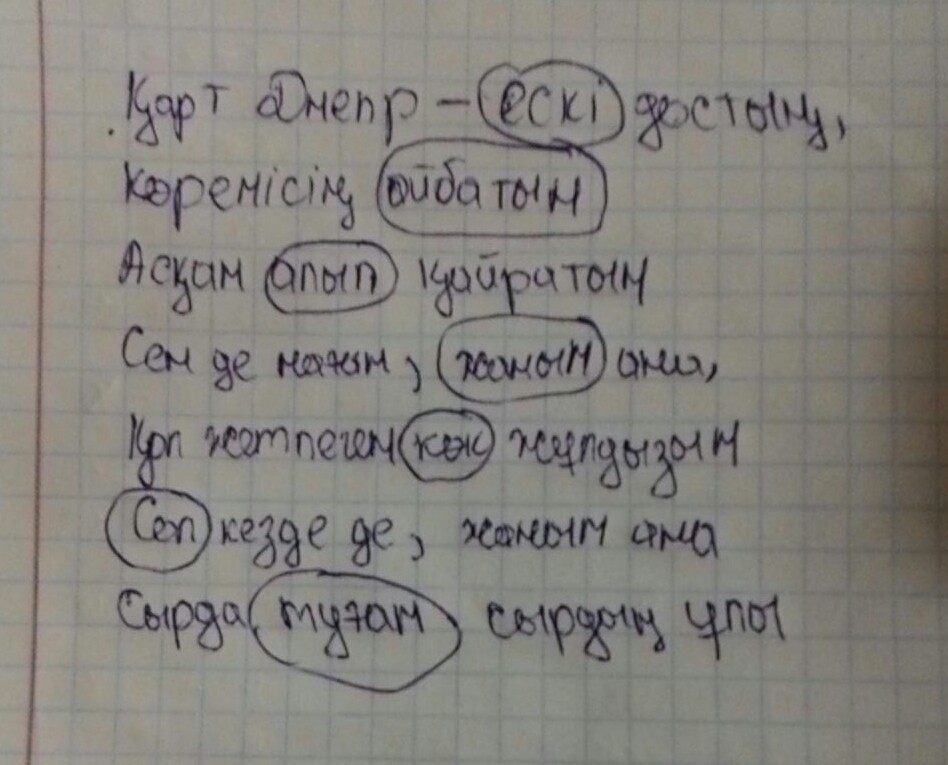 Қарт Днепр – ескі достың,
Көремісің айбатын
Асқан алып қайратың
Сен де мағын, жаным ана,
Қол жетпеген көк жұлдызым
Сол кезде де, жаным ана
Сырда туған сырдың ұлы